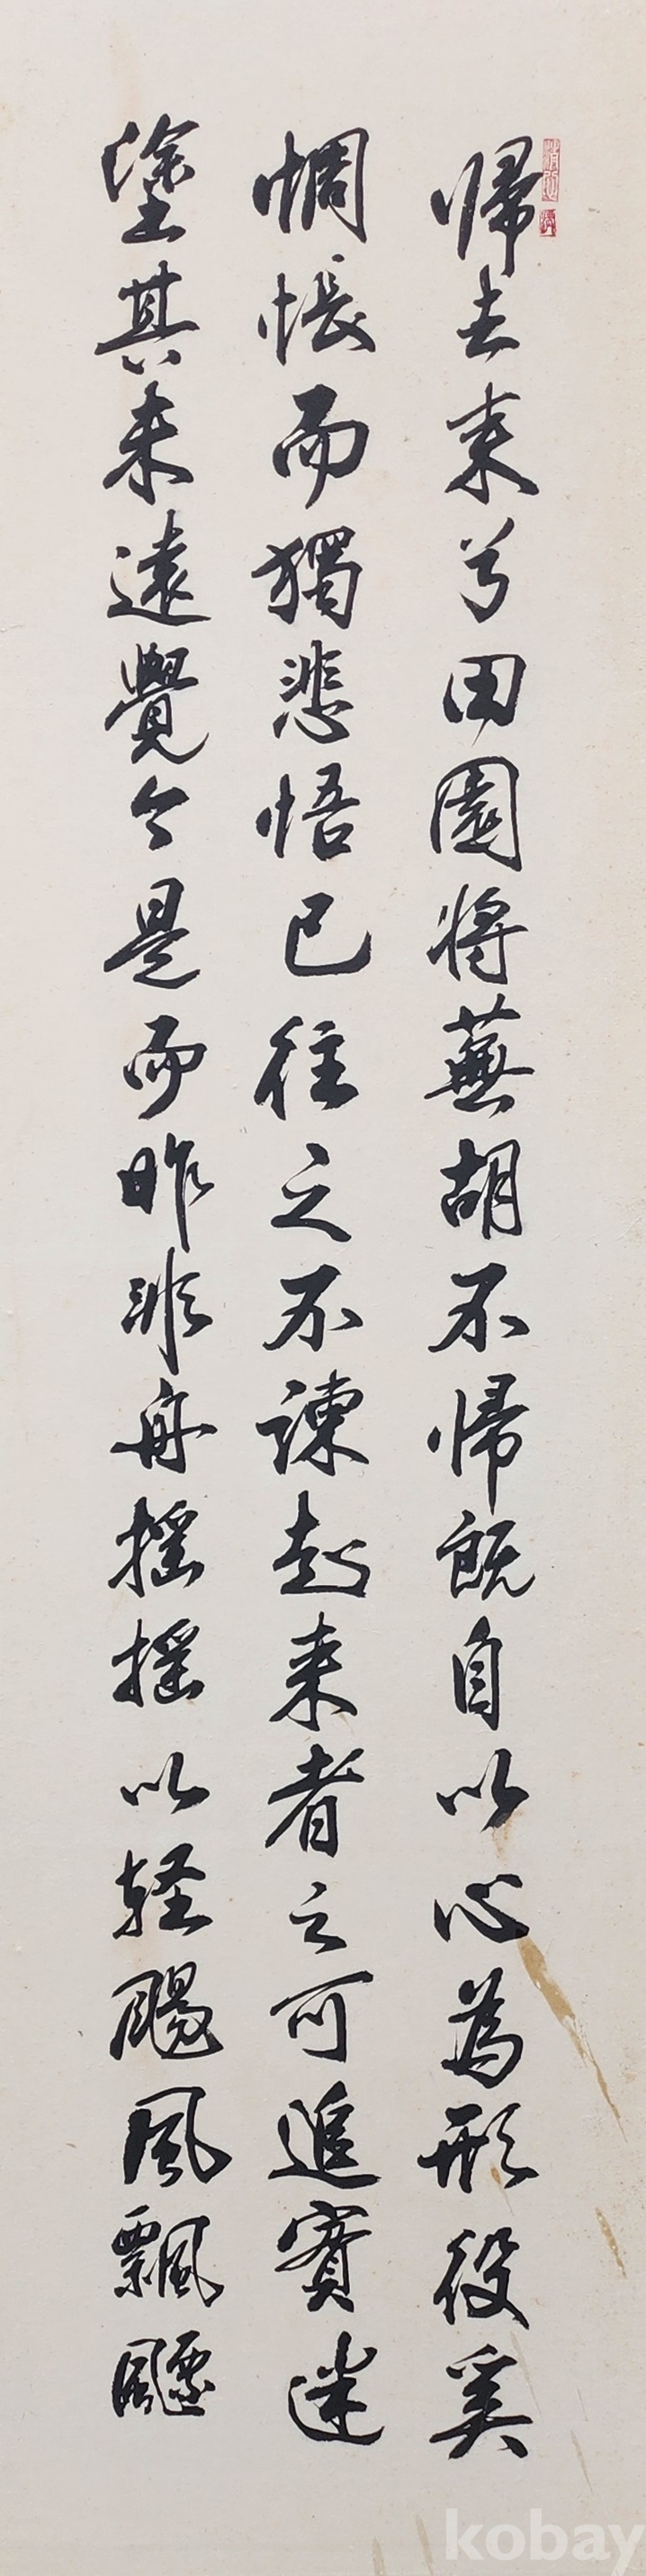 帰去来兮田園将蕪胡不帰既自以心為形役奚
惆悵而獨悲悟已往之不諫起来者之可追實迷
塗其未遠覺今是而昨非舟揺揺以軽颺風飄飄
kobay